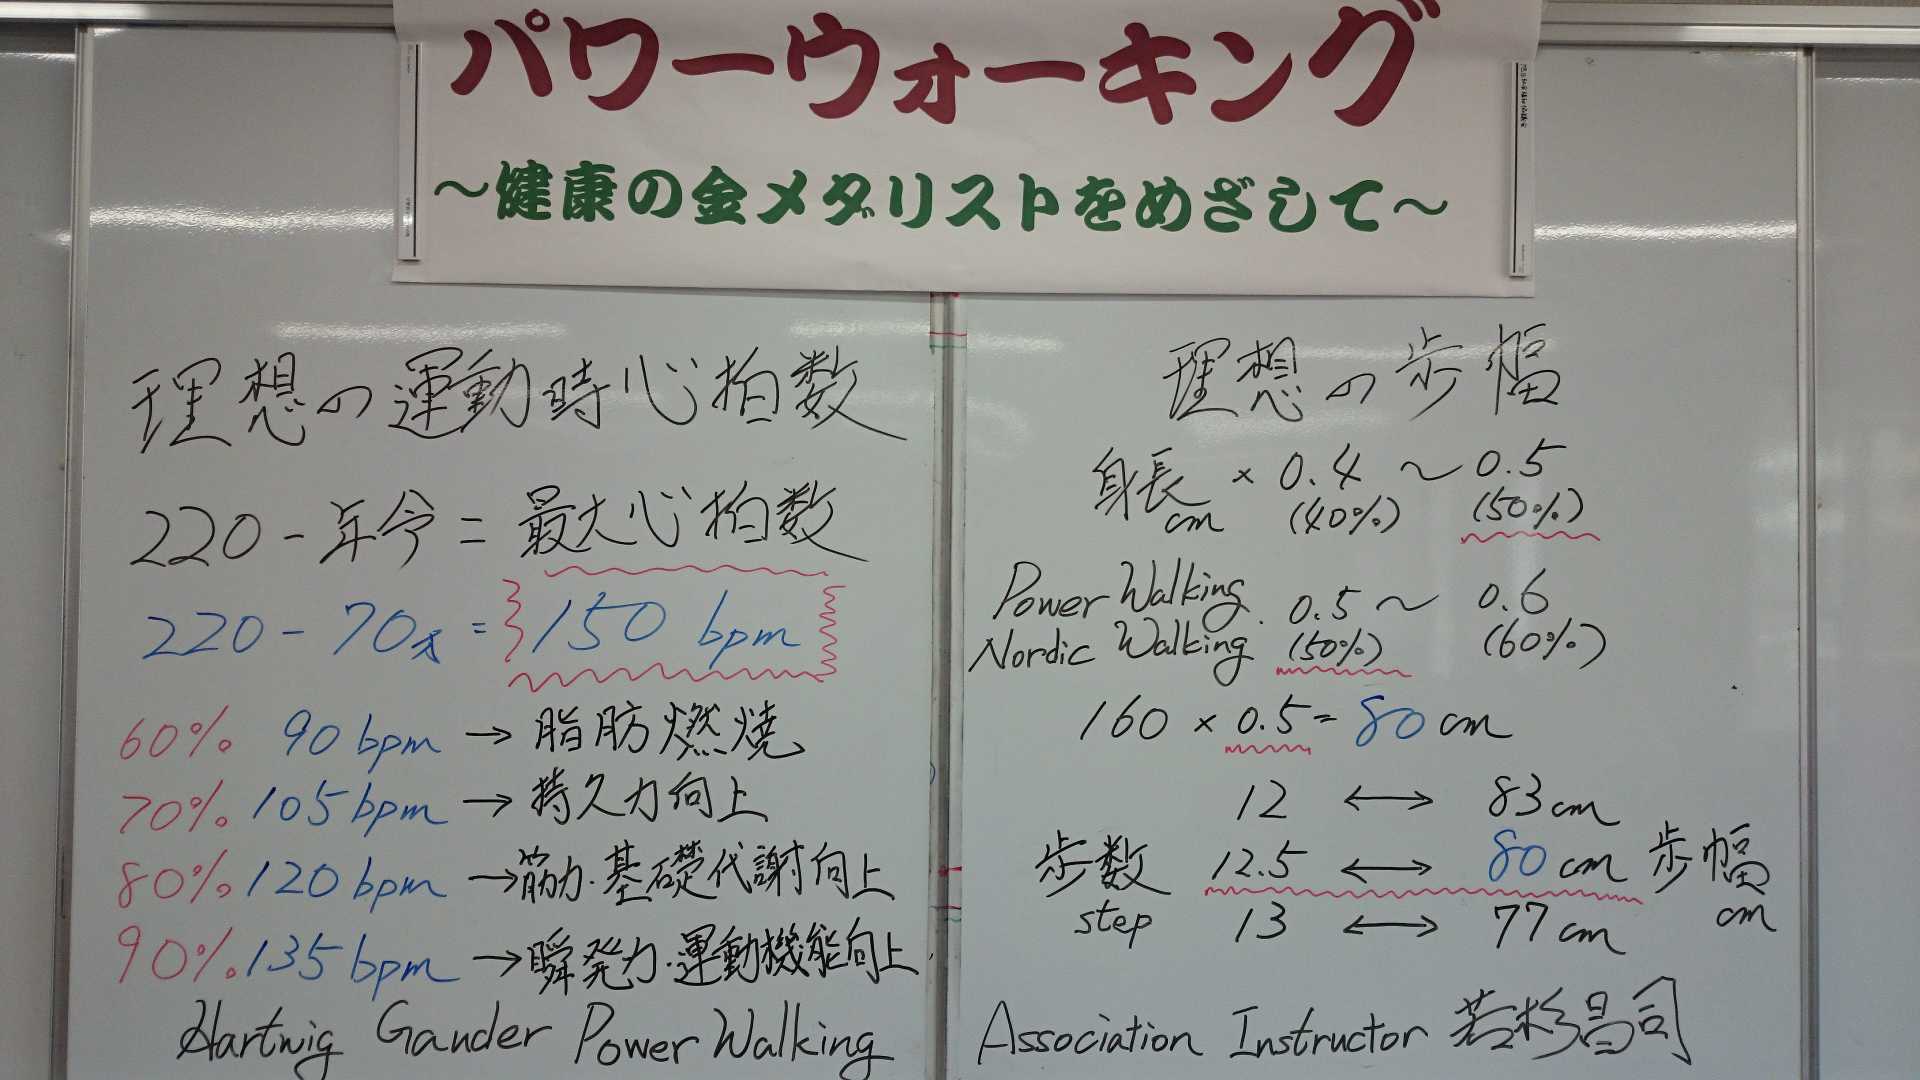 パワーウォーキング
～健康の金メダリストをめざして～
理想の運動時心拍数
220 - 年令 = 最大心拍数
220 - 70才 = 150 bpm
60% 90 bpm → 脂肪燃焼
70% 105 bpm → 持久力向上
80% 120 bpm → 筋力・基礎代謝向上
90% 135 bpm → 瞬発力・運動機能向上
Hartwig Gander Power Walking
理想の歩幅
身長 × 0.4 ～ 0.5
cm (40%) (50%)
Power Walking
Nordic Walking
0.5 ～ 0.6
(50%) (60%)
160 × 0.5 = 80 cm
12 ⟷ 83 cm
歩数 12.5 ⟷ 80 cm 歩幅
step 13 ⟷ 77 cm cm
Association Instructor 若杉昌司